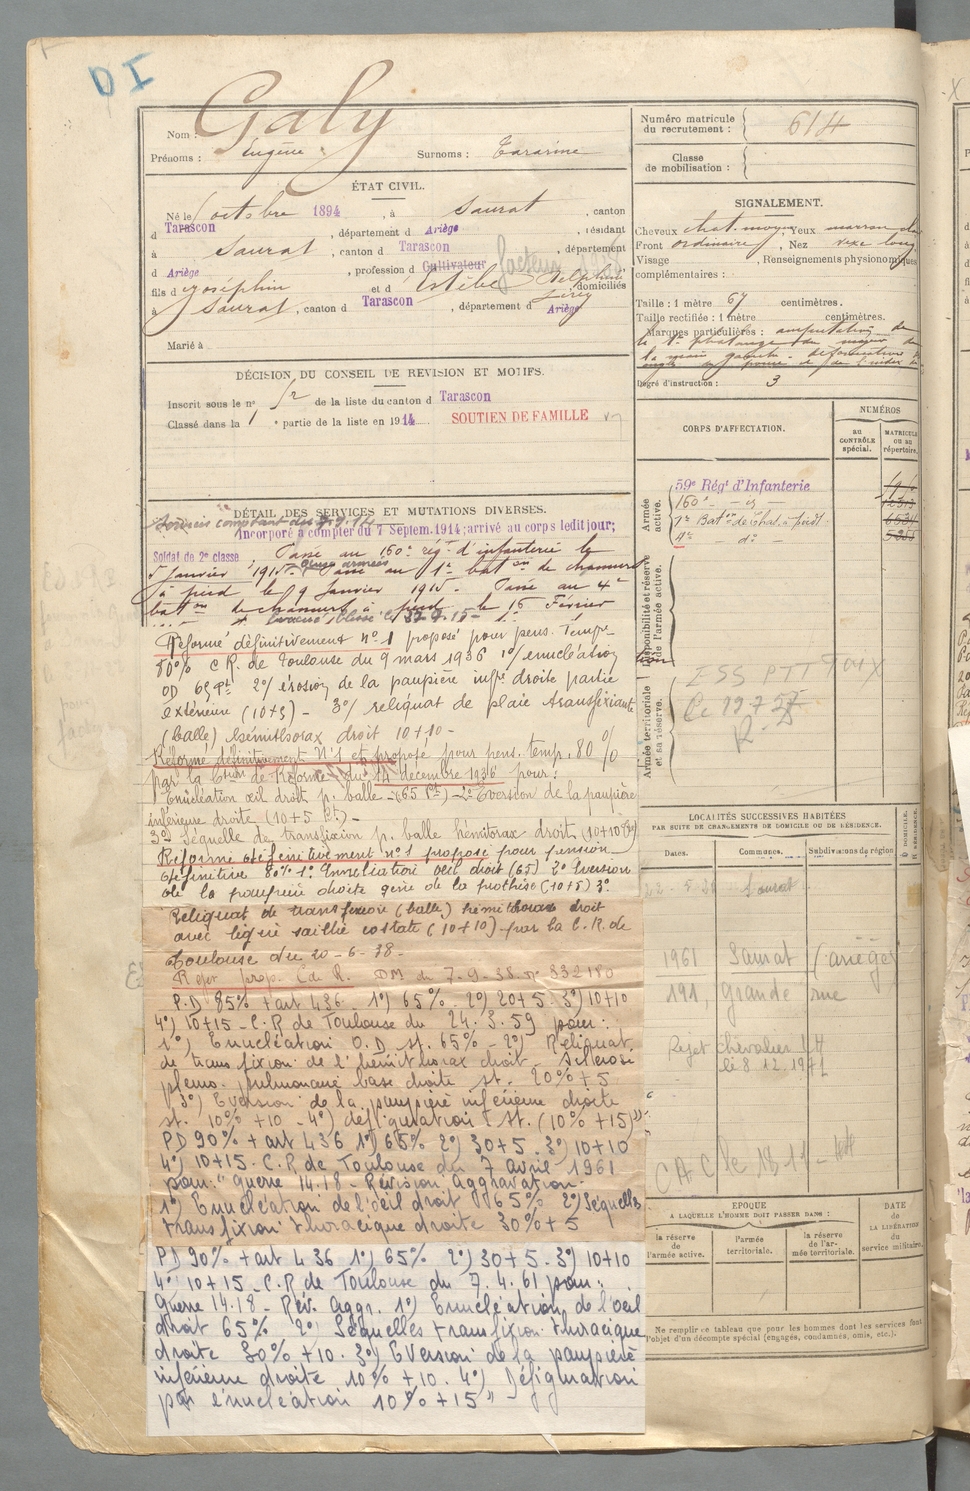 DI
Galy
Nom :
Prénoms : Eugène Surnoms :
Numéro matricule du recrutement : 614
Classe de mobilisation :
ÉTAT CIVIL.
Né le octobre 1894, à Saurat, canton
d Tarascon, département d Ariège, résidant
à Saurat, canton d Tarascon, département
d Ariège, profession d Cultivateur facteur
fils d Joséphin et d Estèbe Delphine, domiciliés
à Saurat, canton d Tarascon, département d Ariège
Marié à
SIGNALEMENT.
Cheveux chat. moyen, Yeux marron
Front ordinaire, Nez long
Visage , Renseignements physionomiques
complémentaires :
Taille : 1 mètre 67 centimètres.
Taille rectifiée : 1 mètre centimètres.
Marques particulières : amputation de
la 1re phalange du
main gauche - déformation
pouce et de l'index
Degré d'instruction : 3
DÉCISION DU CONSEIL DE REVISION ET MOTIFS.
Inscrit sous le n° de la liste du canton d Tarascon
Classé dans la 1 e partie de la liste en 1914 SOUTIEN DE FAMILLE
CORPS D'AFFECTATION.
NUMÉROS
au CONTRÔLE spécial.
MATRICULE ou au répertoire.
Armée active.
59e Régt d'Infanterie
160e - d°
1er Baton de Chas. à pied
4e - d° -
Disponibilité et réserve de l'armée active.
Armée territoriale et sa réserve.
ESS PTT
DÉTAIL DES SERVICES ET MUTATIONS DIVERSES.
Services comptant du 7.9.14
Incorporé à compter du 7 Septem. 1914; arrivé au corps ledit jour;
Soldat de 2e classe. Passé au 160e rég. d'infanterie le
5 Janvier 1915. Passé au 1er baton de chasseurs
à pied le 9 Janvier 1915. Passé au 4e
baton de chasseurs à pied le 16 Février
Réformé définitivement n° 1 proposé pour pens. Temp.
80% C.R. de Toulouse du 9 mars 1936 1°/ enucléation
OD 65 Pt 2°/ érosion de la paupière infre droite partie
extérieure (10+5) - 3°/ reliquat de plaie transfixiante
(balle) hémithorax droit 10+10 -
Réformé définitivement N°1 et proposé pour pens. temp. 80%
par la Commission de Réforme du 14 decembre 1936 pour :
1° Enucléation œil droit p. balle - (65 Pt) - 2° Eversion de la paupière
inférieure droite (10+5 Pt) -
3° Séquelle de transfixion p. balle hémitorax droit (10+10 Pt)
Réformé définitivement n°1 proposé pour pension
définitive 80% 1° Enucléation œil droit (65) 2° Eversion
de la paupière droite gêne de la prothèse (10+5) 3°
Reliquat de transfixion (balle) hémithorax droit
avec légère saillie costale (10+10) par la C.R. de
Toulouse du 20-6-38-
Rejet prop. C.d R. DM du 7-9-38 n° 832180
P.D 85% + art 436 - 1°) 65% - 2°) 20+5 - 3°) 10+10
4°) 10+15 - C.R de Toulouse du 24.3.59 pour :
1°) Enucléation O.D st. 65% - 2°) Reliquat
de transfixion de l'hémithorax droit - Sclerose
pleuro-pulmonaire base droite st. 20% + 5
3°) Eversion de la paupière inférieure droite
st. 10% + 10 - 4°) défiguration st. (10% + 15)"
PD 90% + art 436 1°) 65% 2°) 30+5 - 3°) 10+10
4°) 10+15 - C.R de Toulouse du 7 Avril 1961
pour : "Guerre 14.18 - Révision Aggravation -
1°) Enucléation de l'œil droit 65% 2°) Séquelles
transfixion thoracique droite 30% + 5
PD 90% + art 436 1°) 65% 2°) 30+5 - 3°) 10+10
4°) 10+15 - C.R de Toulouse du 7.4.61 pour :
Guerre 14.18 - Rév. Aggr. 1°) Enucléation de l'œil
droit 65% 2°) Séquelles transfixion thoracique
droite 30% + 10 - 3°) Eversion de la paupière
inférieure droite 10% + 10 - 4°) Défiguration
par énucléation 10% + 15"
LOCALITÉS SUCCESSIVES HABITÉES
PAR SUITE DE CHANGEMENTS DE DOMICILE OU DE RÉSIDENCE.
Dates. Communes. Subdivisions de région
D. DOMICILE. R. RÉSIDENCE.
Saurat
1961 Saurat (ariège)
191, Grande rue
Rejet chevalier LH
le 8.12.1971
CAC le 18.11
EPOQUE
A LAQUELLE L'HOMME DOIT PASSER DANS :
la réserve de l'armée active.
l'armée territoriale.
la réserve de l'armée territoriale.
DATE de LA LIBÉRATION du service militaire.
Ne remplir ce tableau que pour les hommes dont les services font
l'objet d'un décompte spécial (engagés, condamnés, omis, etc.).